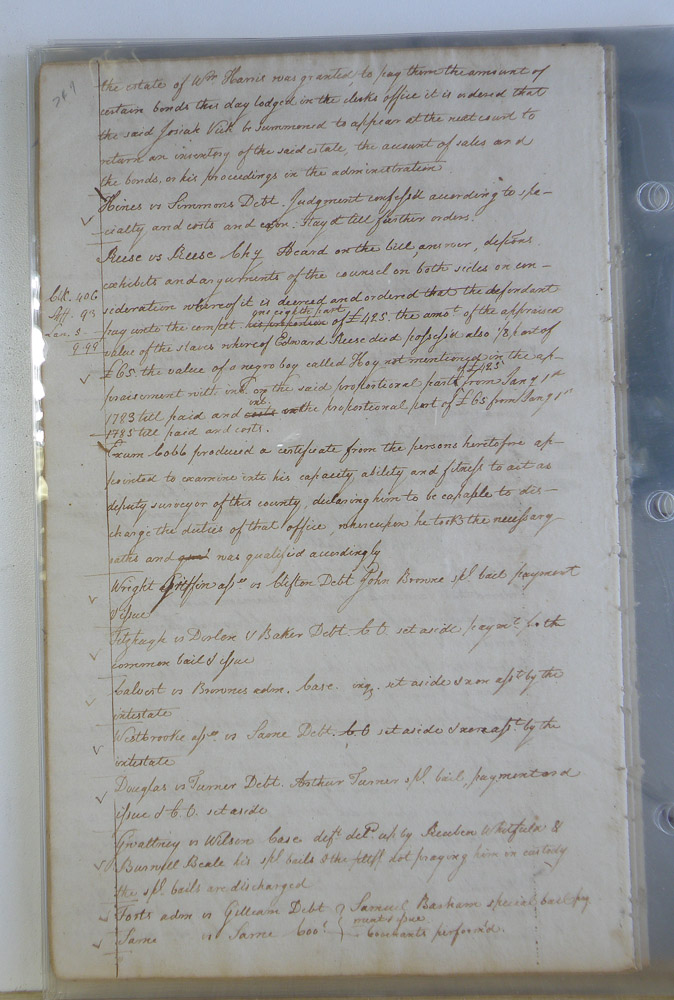 269
the estate of Wm Harris was granted to pay them the amount of
certain bonds this day lodged in the clerks office it is ordered that
the said Josiah Vick be summoned to appear at the next court to
return an inventory of the said estate, the account of sales and
the bonds, or his proceedings in the administration
Hines vs Simmons Debt. Judgment confess'd according to spe-
cialty and costs and exon. stay'd till further orders.
Reese vs Reese Chy Heard on the bill, answer, depions
exhibits and arguments of the counsel on both sides on con-
sideration whereof it is decreed and ordered that the defendant
Clk. 406
Aff. 93
5
9.99
one eighth part
pay unto the complt his proportion of £425. the amot of the appraised
value of the slaves whereof Edward Reese died possess'd also 1/8 part of
£65. the value of a negro boy called Hoy not mentioned in the ap-
praisement with int. on the said proportional parts of £425 from Jany 1st
1783 till paid and costs on int. the proportional part of £65 from Jany 1st
1785 till paid and costs.
Exum Cobb produced a certificate from the persons heretofore ap-
pointed to examine into his capacity, ability and fitness to act as
deputy surveyor of this county, declaring him to be capable to dis-
charge the duties of that office, whereupon he took the necessary
oaths and was qualified accordingly
Wright Griffin assee vs Clifton Debt John Browne spl. bail payment
& issue
Fitzhugh vs Dorlon & Baker Debt. C.O. set aside paymt. both
common bail & issue
Calvert vs Brownes adm. Case. inq. set aside & non asst by the
intestate
Westbrooke assee vs Same Debt. C.O set aside & non asst. by the
intestate
Douglas vs Turner Debt. Arthur Turner spl. bail, payment and
issue & C.O. set aside
Gwaltney vs Wilson Case deft. deld up by Reuben Whitfield &
Burwell Beale his spl bails & the pltff not praying him in custody
the spl. bails are discharged
Forts adm vs Gilliam Debt } Samuel Basham special bail pay
ment & issue
Same vs Same Covt. } Covenants perform'd.